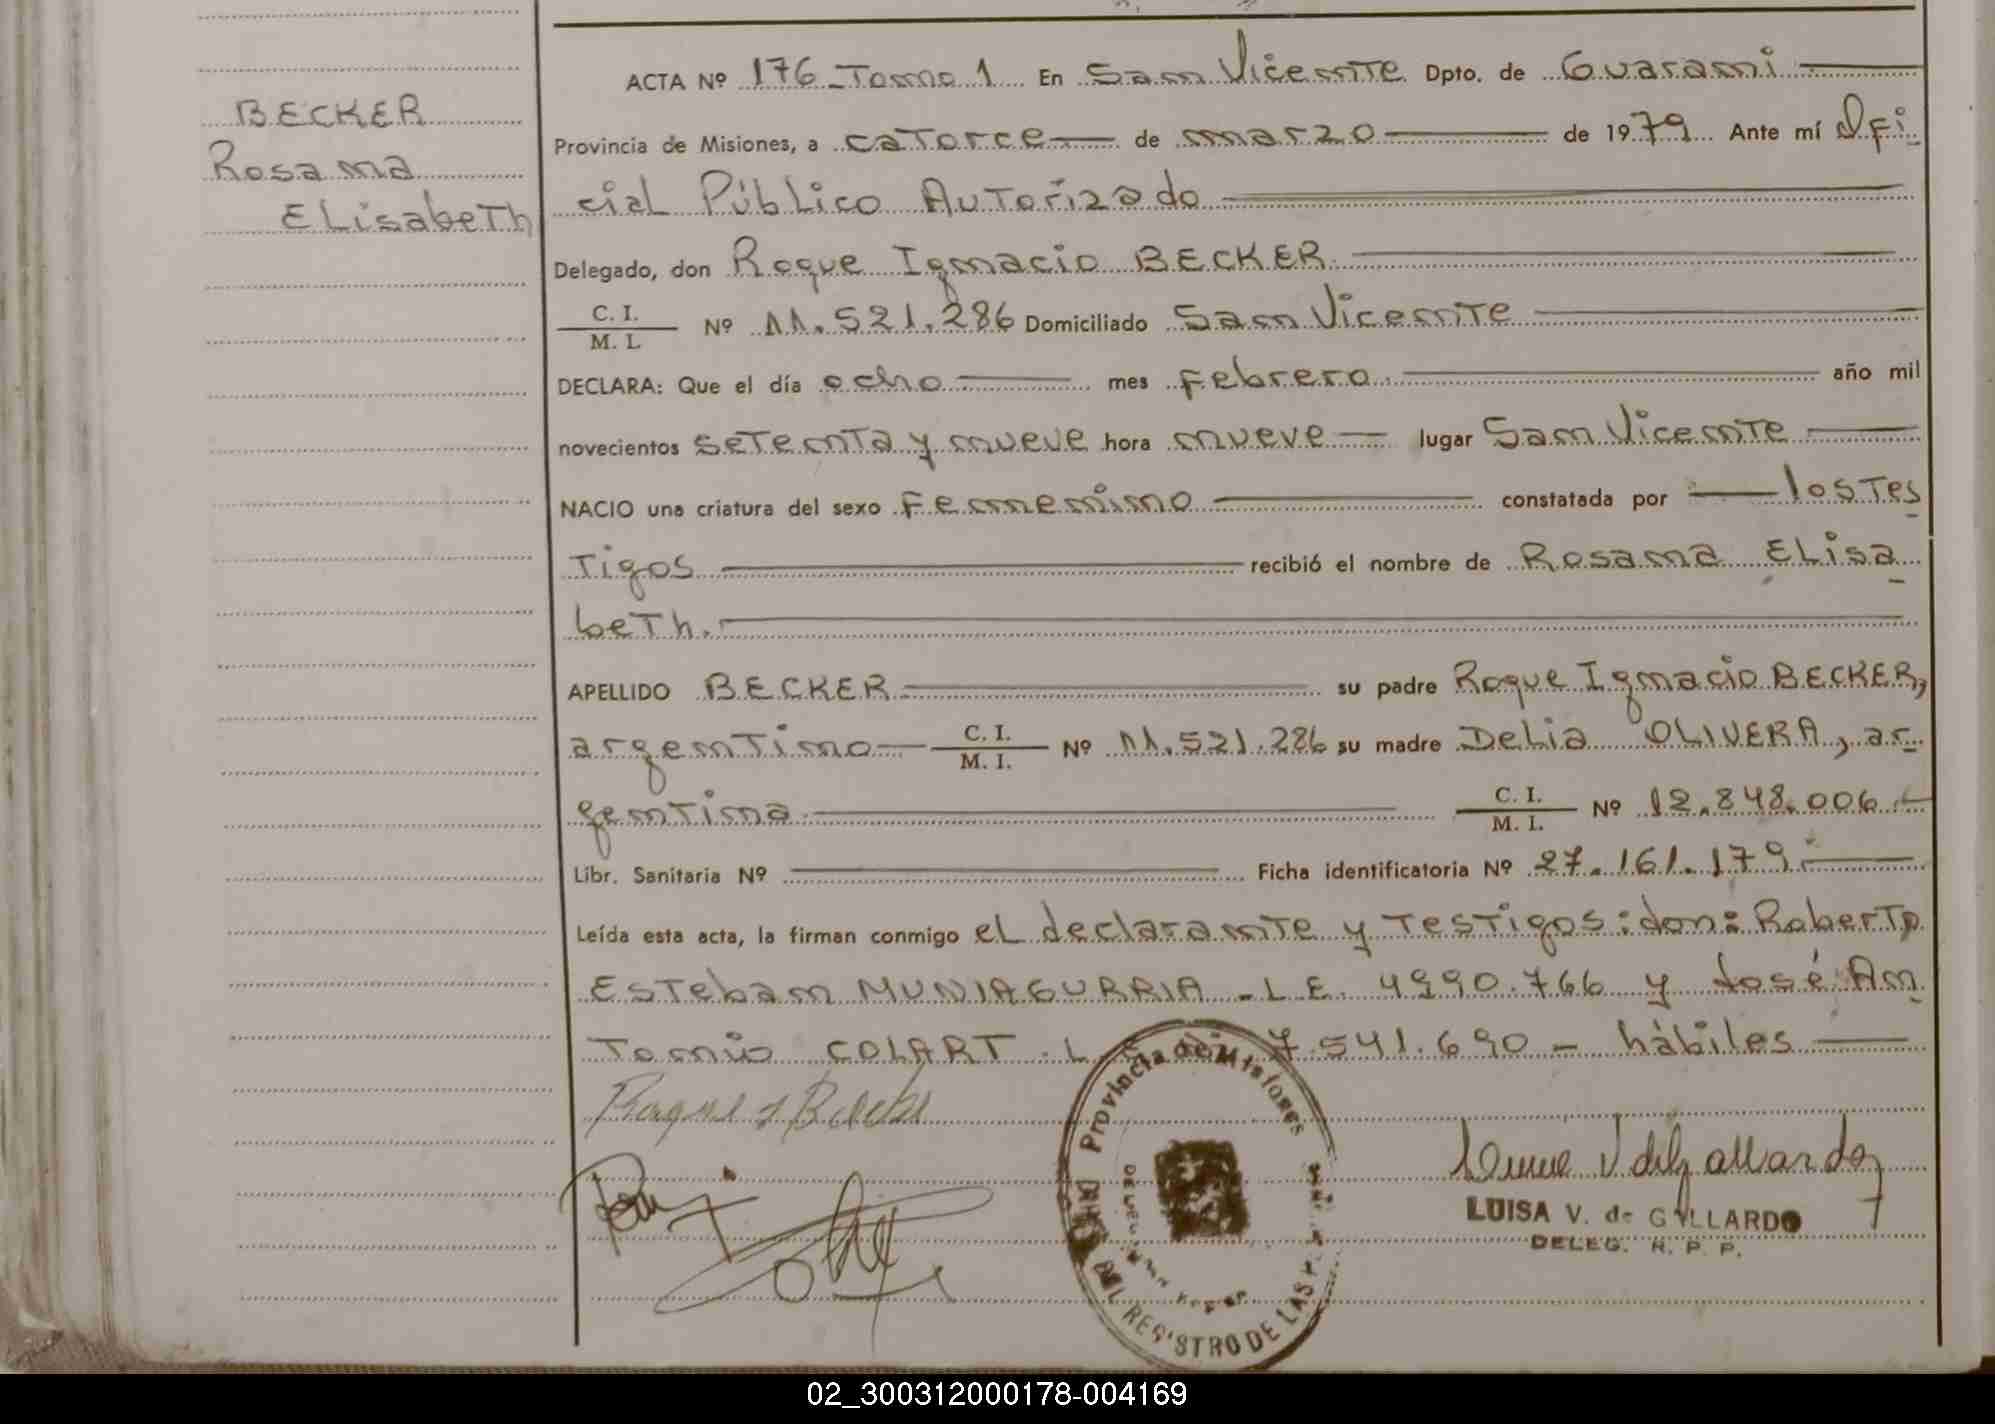 BECKER
Rosana
ELisabeTh
ACTA Nº 176 Tomo 1 En San Vicente Dpto. de Guaraní
Provincia de Misiones, a catorce de marzo de 1979 Ante mí Ofi
cial Público Autorizado
Delegado, don Roque Ignacio BECKER
C. I.
M. I. Nº 11.521.286 Domiciliado San Vicente
DECLARA: Que el día ocho mes febrero año mil
novecientos setenta y nueve hora nueve lugar San Vicente
NACIO una criatura del sexo femenino constatada por los Tes
Tigos recibió el nombre de Rosana ELisa
beTh.
APELLIDO BECKER su padre Roque Ignacio BECKER,
argentino C. I.
M. I. Nº 11.521.286 su madre Delia OLIVERA, ar
gentina C. I.
M. I. Nº 12.848.006
Libr. Sanitaria Nº Ficha identificatoria Nº 27.161.179.
Leída esta acta, la firman conmigo el declarante y testigos: don: Roberto
Esteban MUNIAGURRIA - L.E. 4990.766 y José An
Tonio COLART . L. E. 7.541.690 - hábiles
Provincia de Misiones
REGISTRO DE LAS P
LUISA V. de GALLARDO
DELEG. R. P. P.
02_300312000178-004169